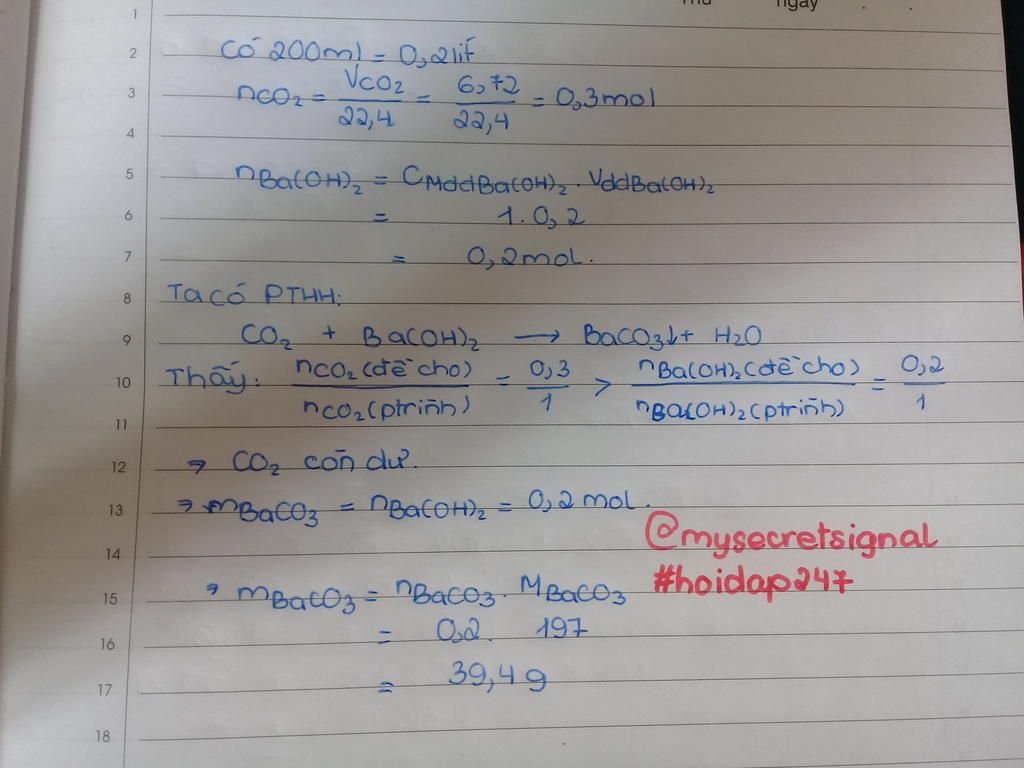 Thứ ngày
1
2 Có 200ml = 0,2lít
3 nCO₂ = VCO₂/22,4 = 6,72/22,4 = 0,3mol
4
5 nBa(OH)₂ = CMddBa(OH)₂ . VddBa(OH)₂
6 = 1.0,2
7 = 0,2mol.
8 Ta có PTHH:
9 CO₂ + Ba(OH)₂ → BaCO₃↓ + H₂O
10 Thấy: nCO₂(đề cho)/nCO₂(ptrình) = 0,3/1 > nBa(OH)₂(đề cho)/nBa(OH)₂(ptrình) = 0,2/1
11
12 ⇒ CO₂ còn dư.
13 ⇒ nBaCO₃ = nBa(OH)₂ = 0,2mol.
@mysecretsignal
14
#hoidap247
15 ⇒ mBaCO₃ = nBaCO₃ . MBaCO₃
16 = 0,2. 197
17 = 39,4g
18